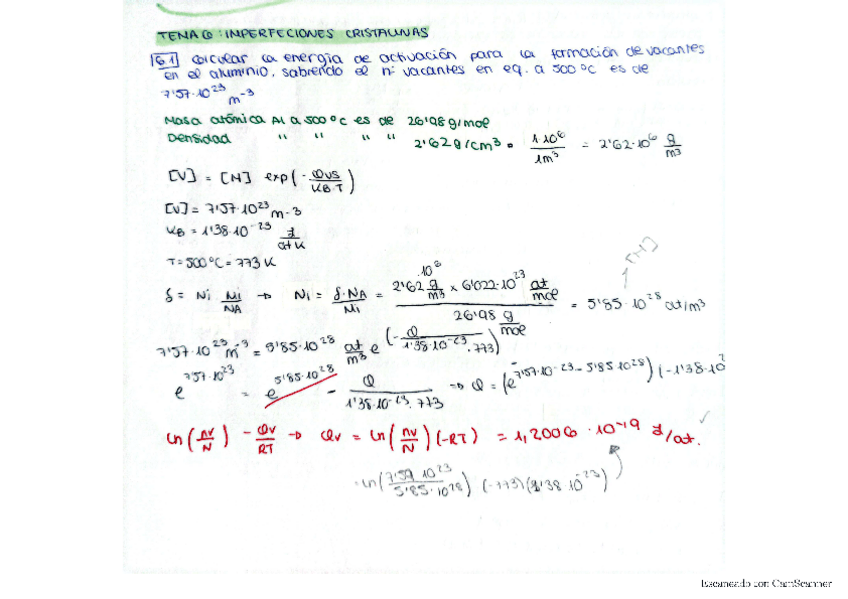 TEMA 6: IMPERFECIONES CRISTALINAS
6.1 Calcular la energía de activación para la formación de vacantes
en el aluminio, sabiendo el nº vacantes en eq. a 500 ºC es de
7'57·10^23 m^-3
Masa atómica Al a 500 ºC es de 26'98 g/mol
Densidad " " " " 2'62 g/cm^3 · 1·10^6 / 1m^3 = 2'62·10^6 g/m^3
[V] = [N] exp(- Qvs / KB·T)
[V] = 7'57·10^23 m-3
KB = 1'38·10^-23 J / at K
T = 500 ºC = 773 K
[N]
δ = Ni Mi/NA → Ni = δ·NA / Mi = 2'62·10^6 g/m^3 x 6'022·10^23 at/mol / 26'98 g/mol = 5'85·10^28 at/m^3
7'57·10^23 m^-3 = 5'85·10^28 at/m^3 e^(- Q / 1'38·10^-23 ·773)
e^7'57·10^23 = e^5'85·10^28 - Q / 1'38·10^-23·773 => Q = (e^7'57·10^-23 - 5'85·10^28) (-1'38·10
ln(nv/N) - Qv/RT → Qv = ln(nv/N) (-RT) = 1,2006 · 10^-19 J/at.
ln(7'59·10^23 / 5'85·10^28) (-773)(1'38·10^-23)
Escaneado con CamScanner